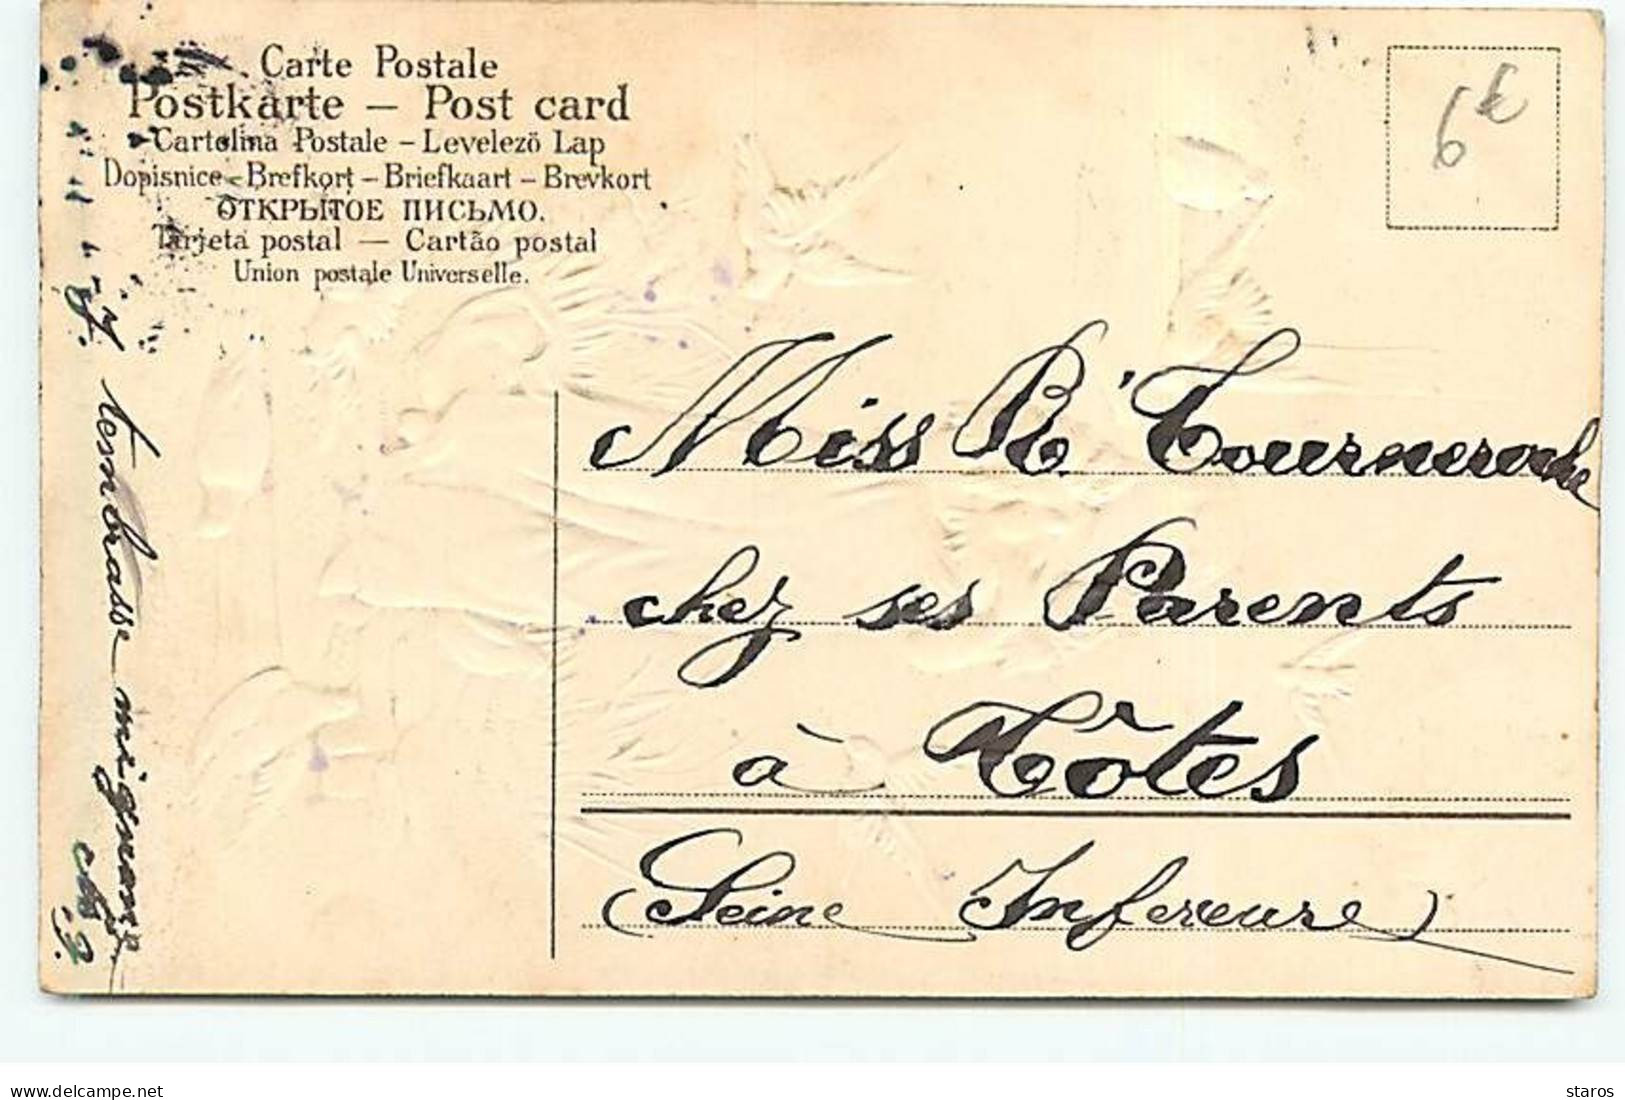 Carte Postale
Postkarte – Post card
Cartolina Postale – Levelező Lap
Dopisnice – Brefkort – Briefkaart – Brevkort
ОТКРЫТОЕ ПИСЬМО.
Tarjeta postal — Cartão postal
Union postale Universelle.
6€
Miss R. Tourneroche
chez ses Parents
à Tôtes
(Seine Infereure)
J. t'embrasse mignonne
delcampe.net
staros